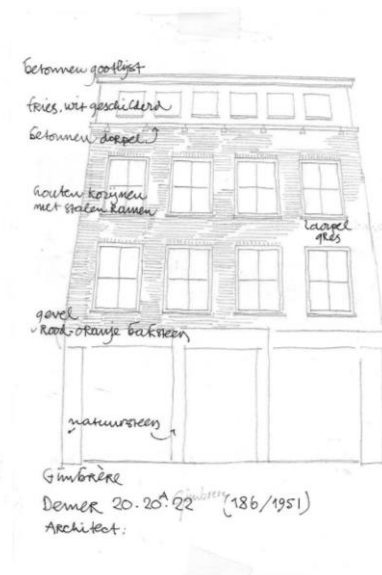 betonnen gootlijst
fries, wit geschilderd
betonnen dorpel
houten kozijnen
met stalen ramen
dorpel
gres
gevel
rood-oranje baksteen
natuursteen
Gimbrère
Demer 20.20A.22 (186/1951)
Gimbrère
Architect: